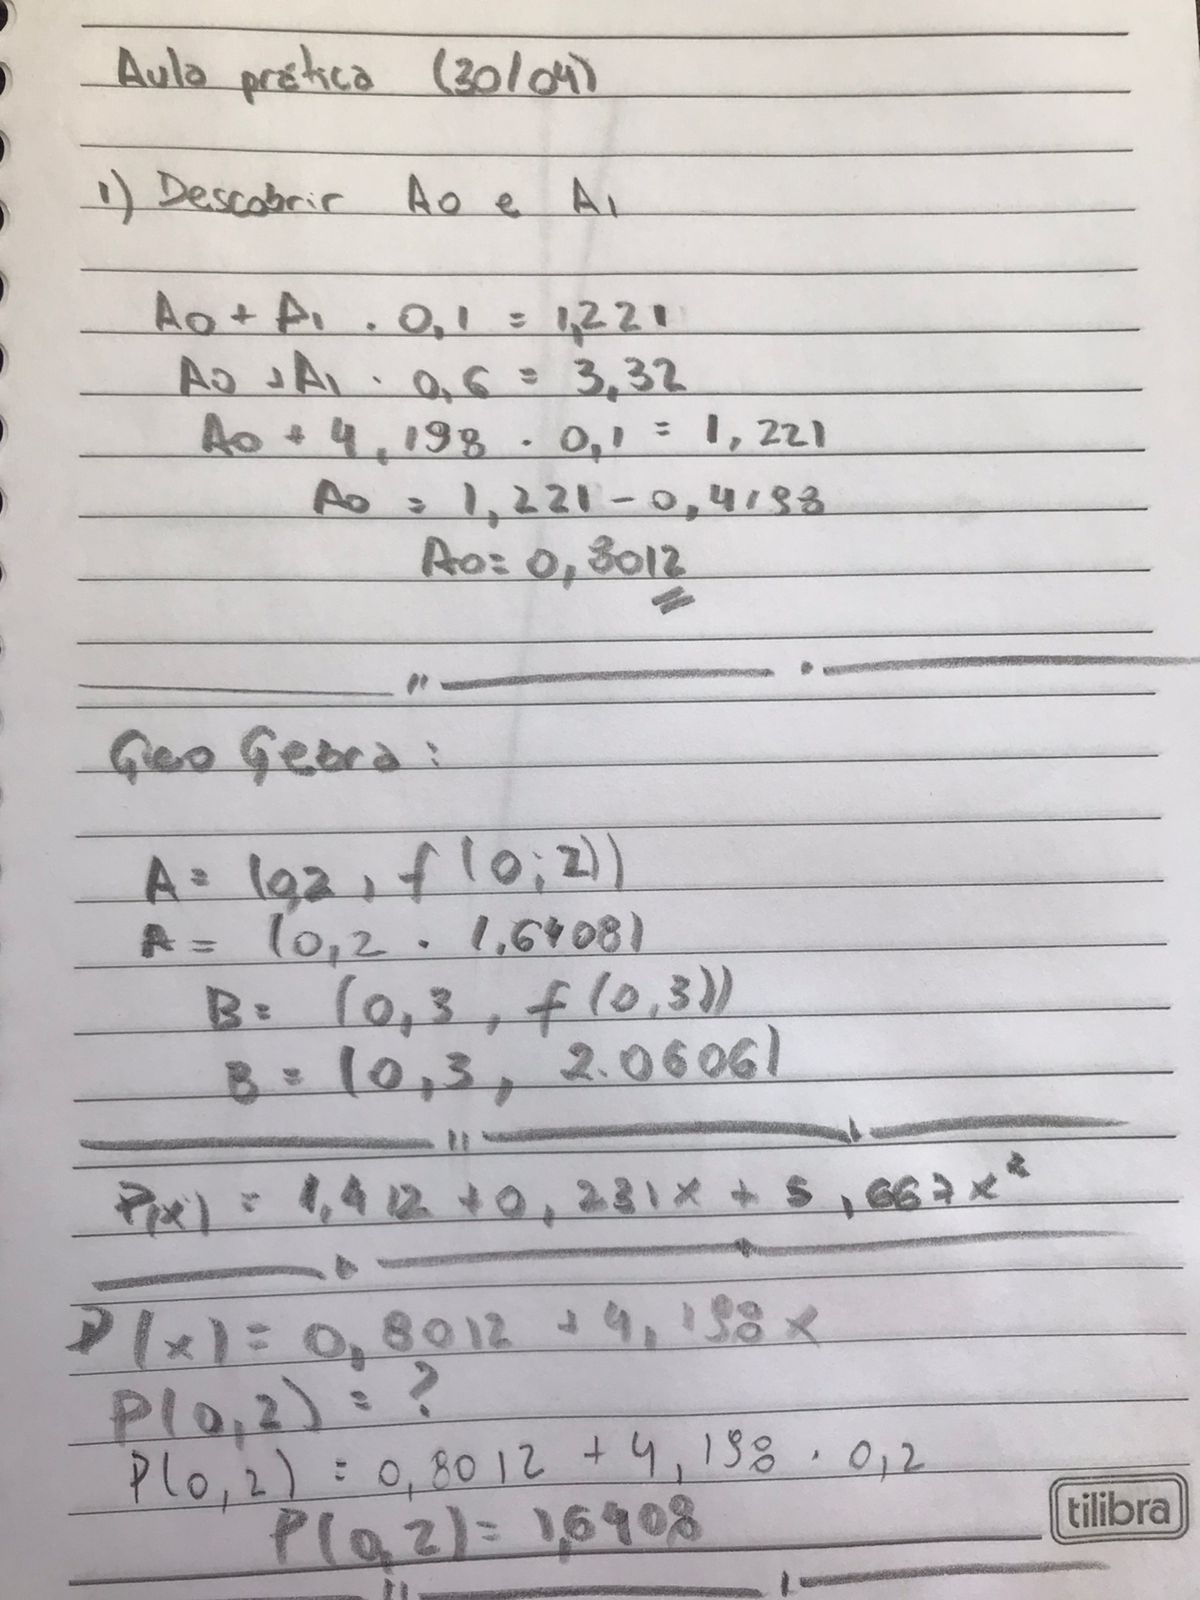 Aula prática (30/04)
1) Descobrir A0 e A1
A0 + A1 . 0,1 = 1,221
A0 + A1 . 0,6 = 3,32
A0 + 4,198 . 0,1 = 1,221
A0 = 1,221 - 0,4198
A0 = 0,8012
Geo Gebra:
A = (0,2, f(0;2))
A = (0,2 . 1.6408)
B = (0,3, f(0,3))
B = (0,3, 2.0606)
P(x) = 1,412 + 0,231x + 5,667x²
P(x) = 0,8012 + 4,198x
P(0,2) = ?
P(0,2) = 0,8012 + 4,198 . 0,2
P(0,2) = 1,6408
tilibra